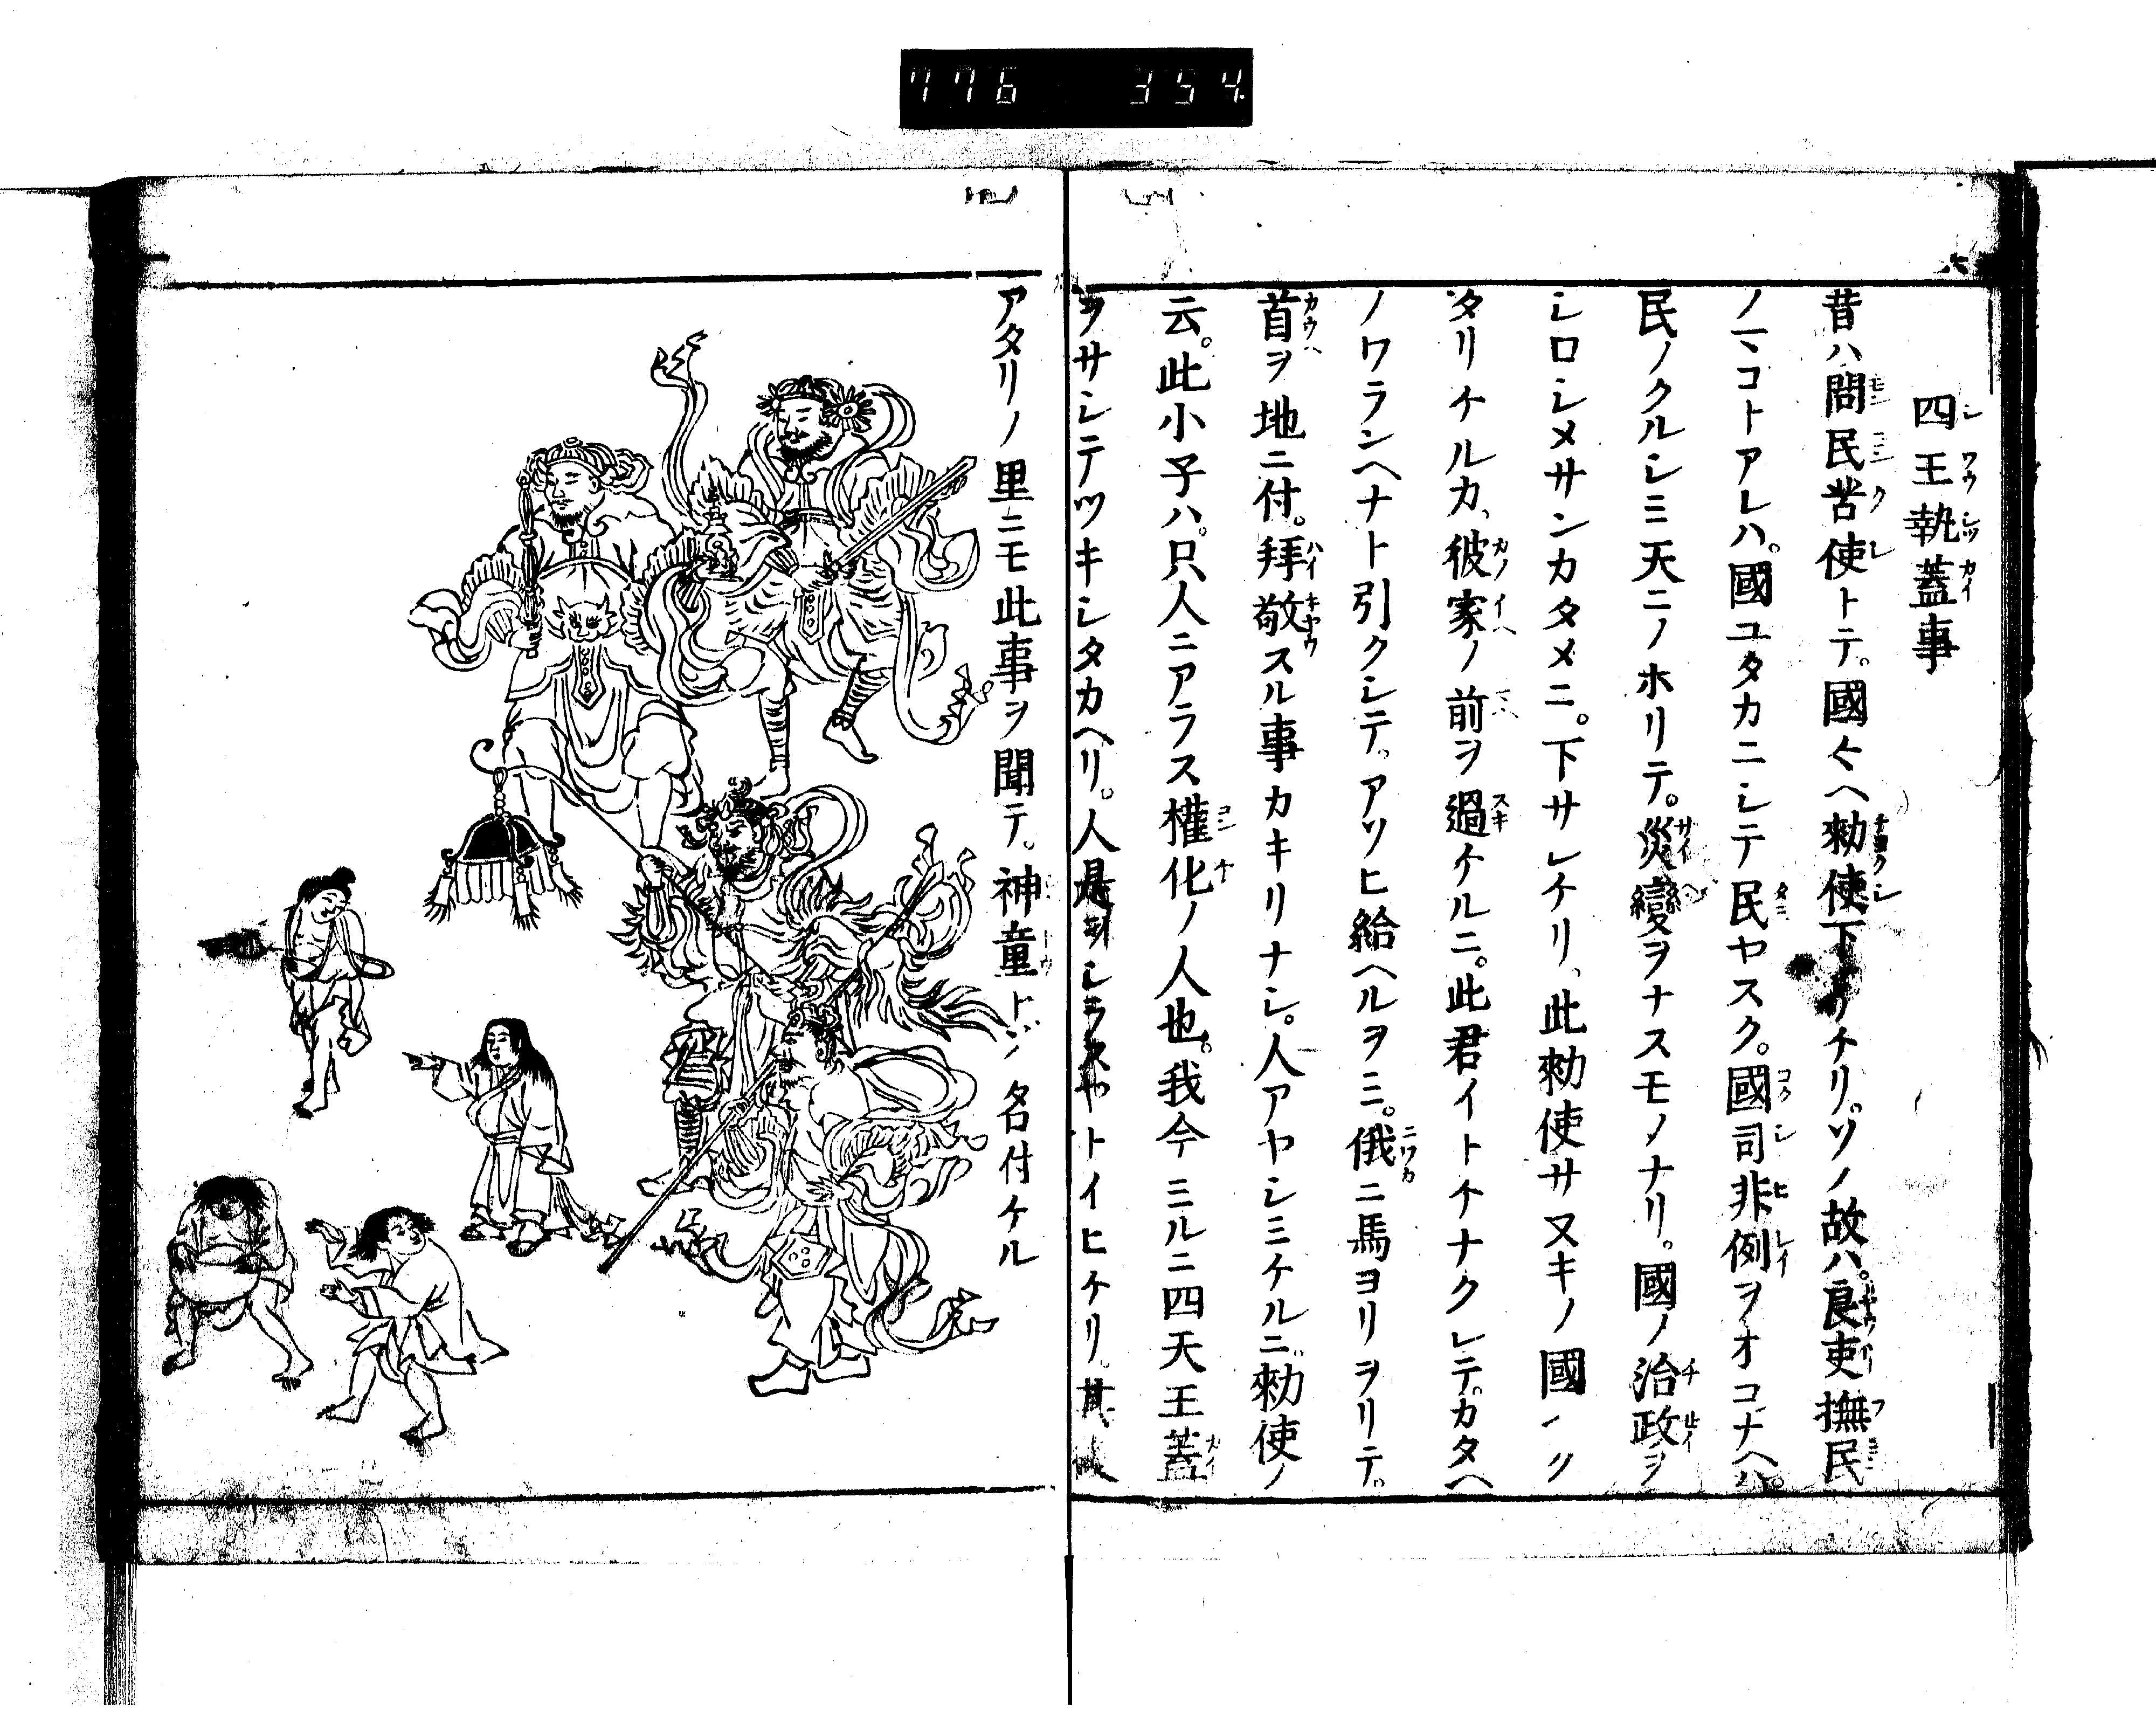 776 354
四王執蓋事
昔ハ問民苦使トテ。國々ヘ勅使下リケリ。ソノ故ハ。良吏撫民
ノマコトアレハ。國ユタカニシテ民ヤスク。國司非例ヲオコナヘハ。
民ノクルシミ天ニノホリテ。災變ヲナスモノナリ。國ノ治政ヲ
シロシメサンカタメニ。下サレケリ、此勅使サヌキノ國ヘク
タリケルカ、彼家ノ前ヲ過ケルニ。此君イトケナクシテ。カタヘ
ノワランヘナト引クシテ。アソヒ給ヘルヲミ。俄ニ馬ヨリヲリテ。
首ヲ地ニ付。拜敬スル事カキリナシ。人アヤシミケルニ。勅使ノ
云。此小子ハ。只人ニアラス權化ノ人也。我今ミルニ四天王蓋
ヲサシテツキシタカヘリ。人是ヲシラスヤトイヒケリ。其後
アタリノ里ニモ此事ヲ聞テ。神童トソ名付ケル